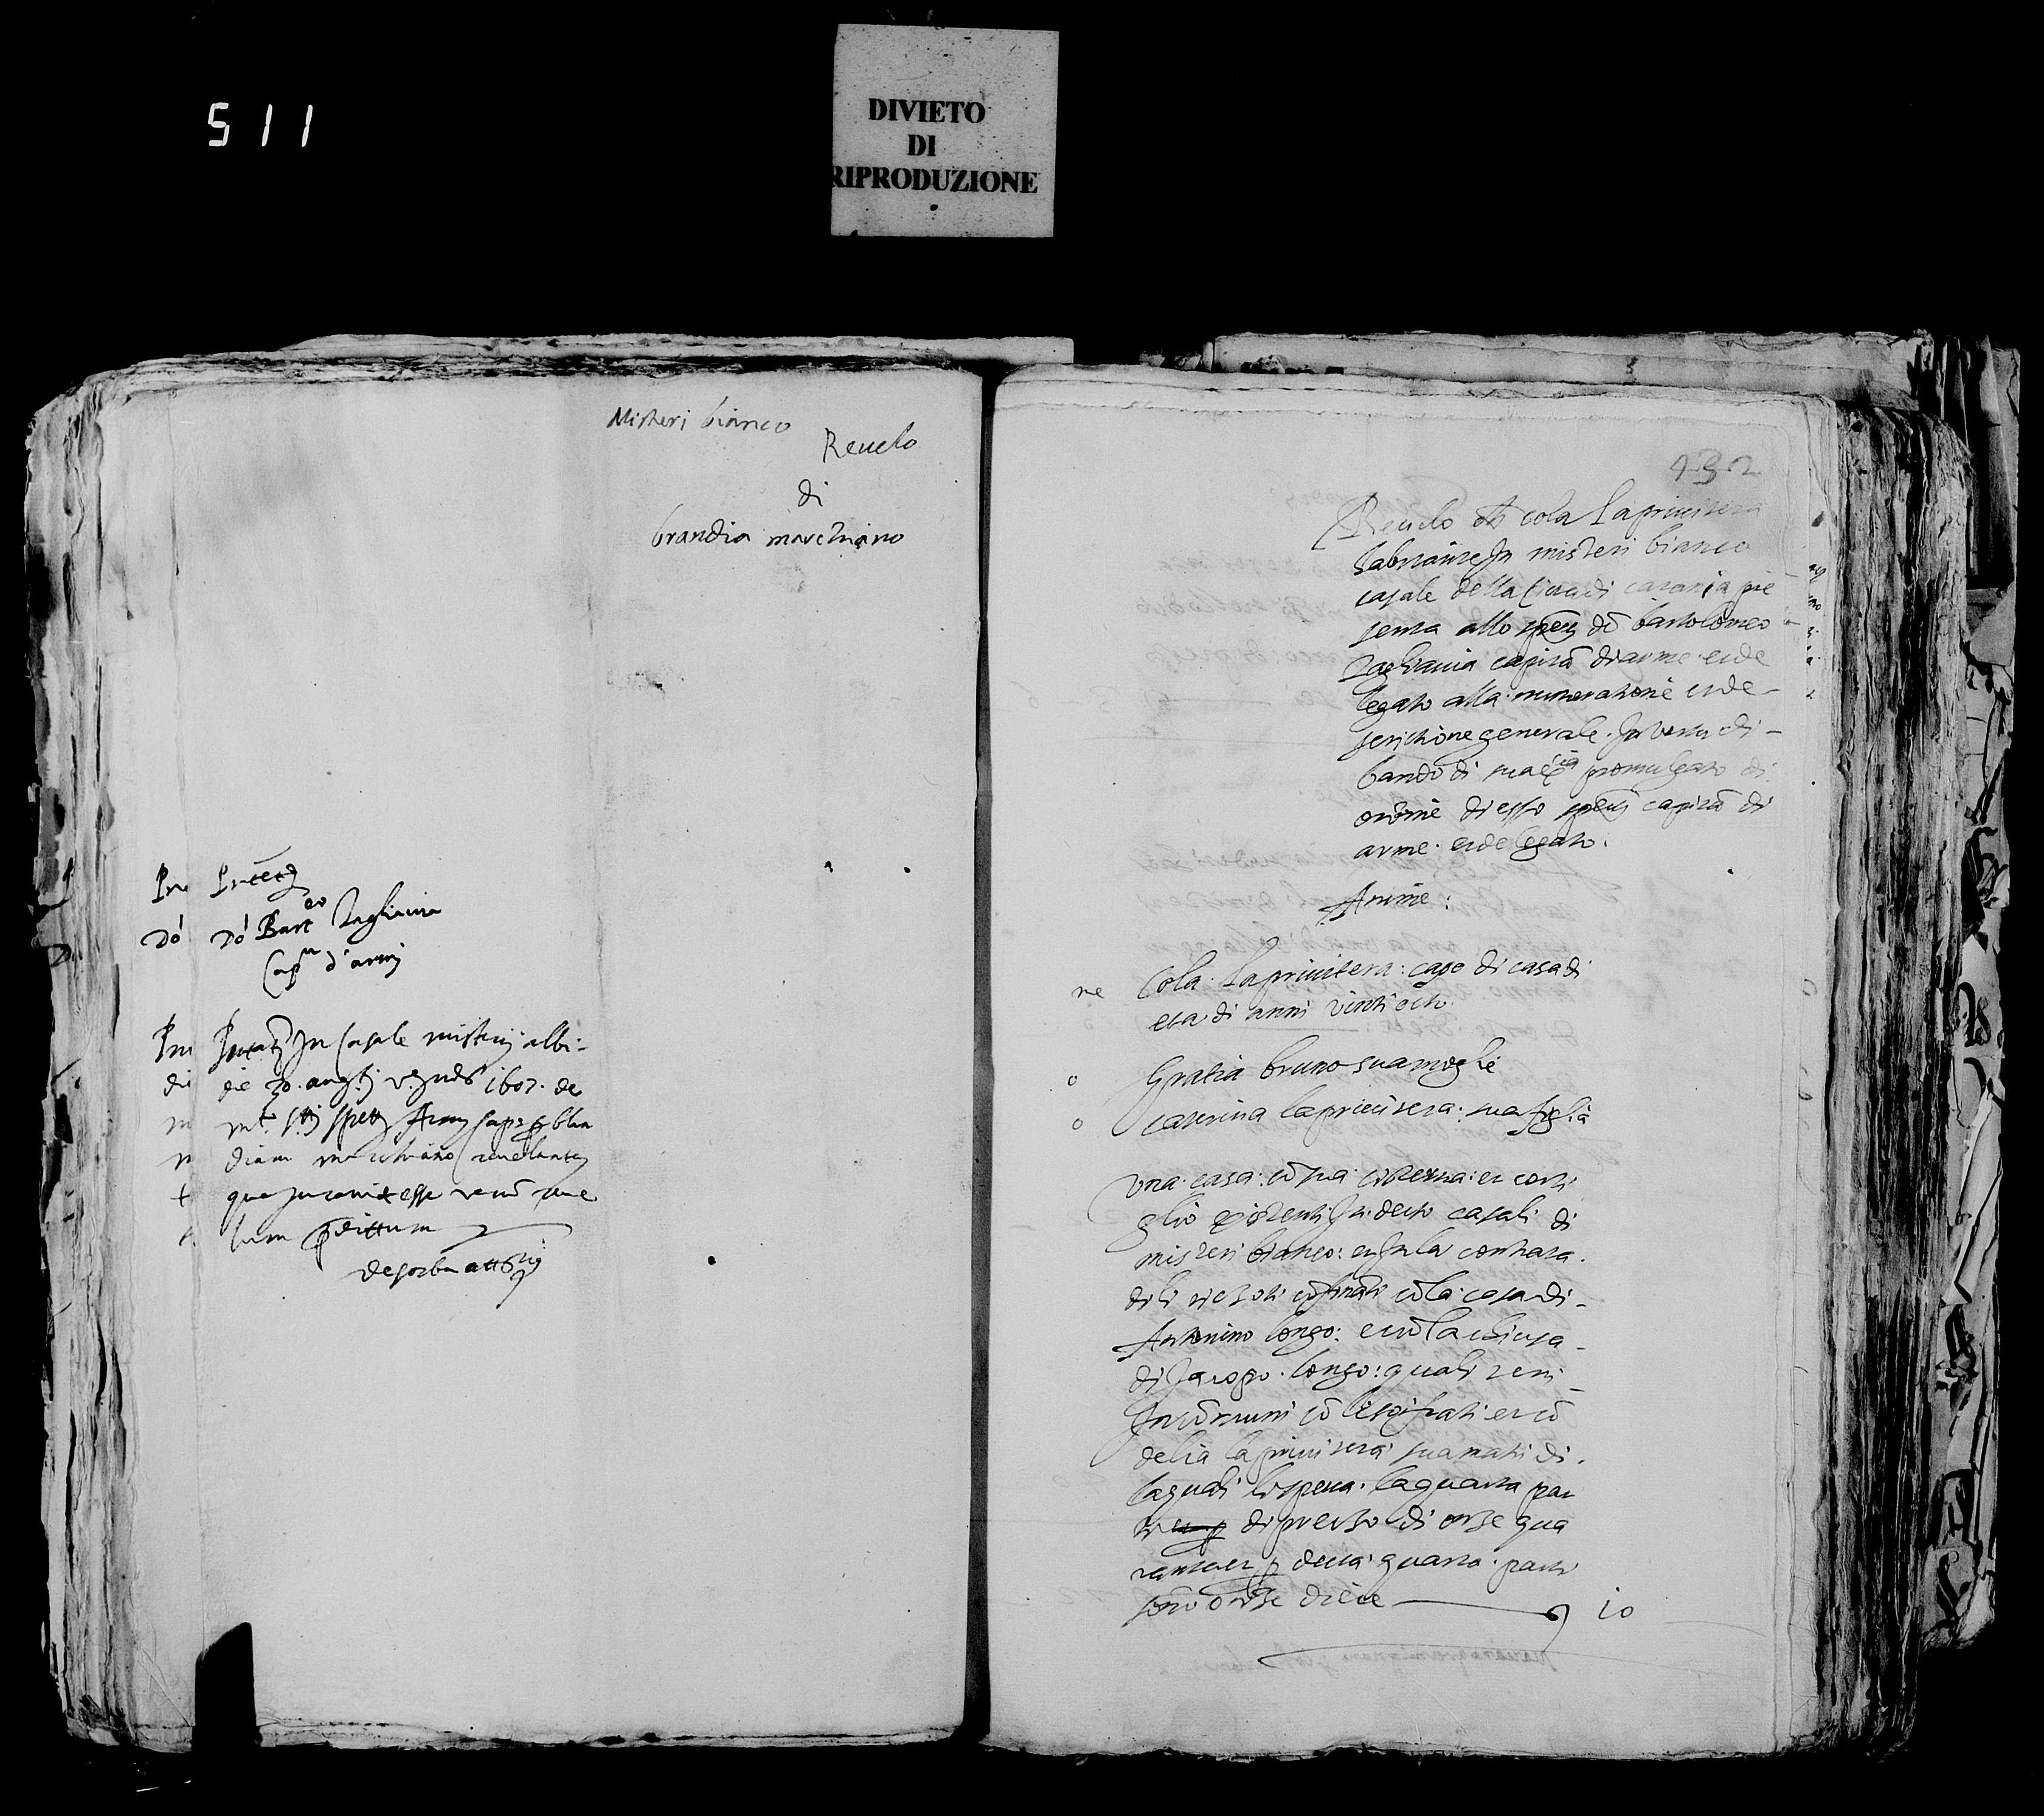 511
DIVIETO
DI
RIPRODUZIONE
Misteri bianco
Revelo
di
brandia marchiano
Do Bart.eo Tagliavia
Cap.n d'armi
In Casale misterij albi
die 30. aug.ti 1607. de
diam marchiano revelantem
esse verum reve
lum
432
Revelo di cola Laprivitera
habitante In misteri bianco
casale della cita di catania pre
senta allo spett. do bartolomeo
tagliavia capita di arme et de
legato alla numeratione et de
scritione generale. In virtu di
bando di sua ex.tia promulgato di
ordine di esso spett. capita di
arme. et delegato.
Anime:
Cola. laprivitera: capo di casa di
eta di anni vinti otto
Gratia bruno sua moglie
o
caterina laprivitera: sua figlia
o
Una casa: co sua cisterna: et corti
glio existenti In detto casali di
misteri bianco: et In la contrata.
di li co la casa di
Antonino longo: et co la chiusa
di Jacopo. longo: quali teni
In comuni co li soi frati et co
delia laprivitera sua matri di
la quali li spetta. la quarta par
ti di prezzo di onze qua
ranta et p detta quarta. parti
sono onze dieci 10